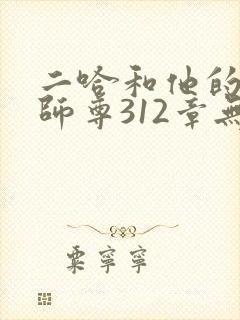 二哈和他的
師尊312章無
粟寧寧